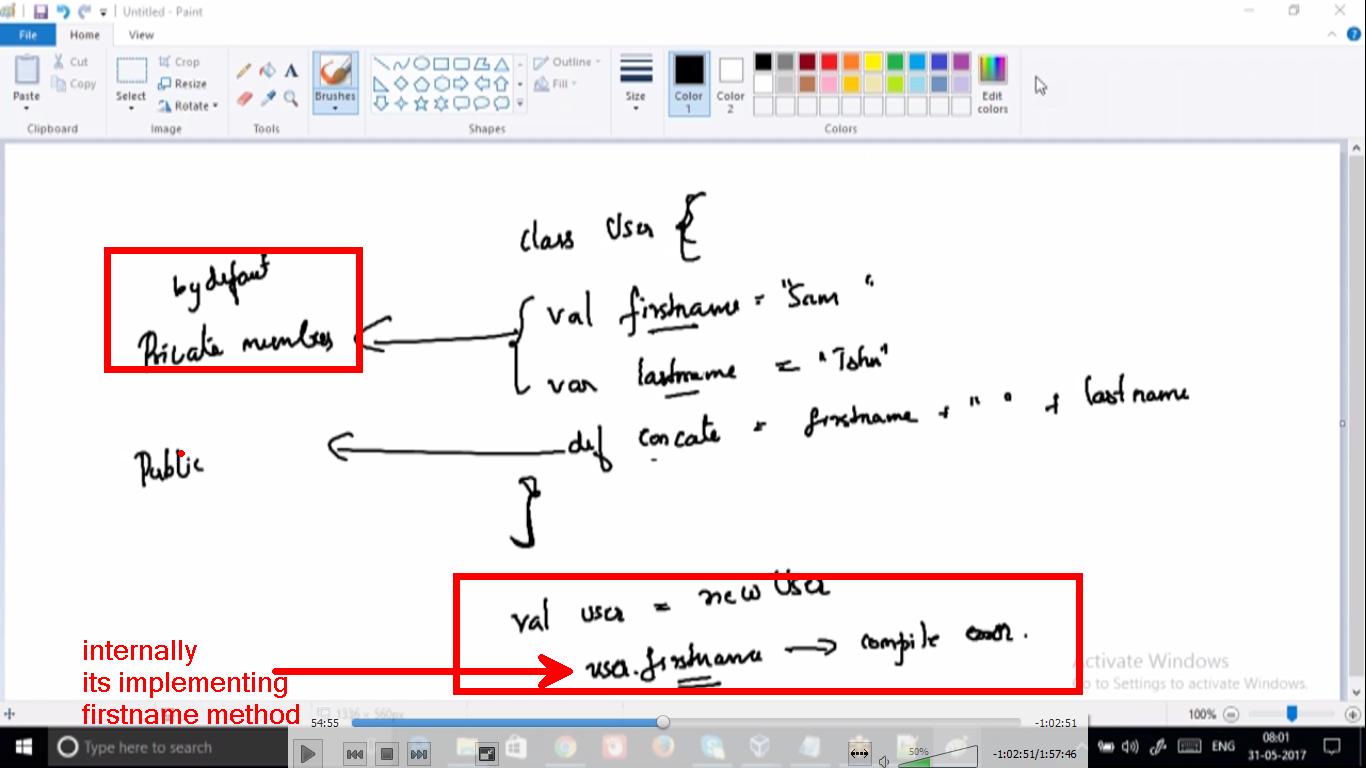 Untitled - Paint
File Home View
Cut
Copy
Paste
Clipboard
Crop
Resize
Rotate
Select
Image
Tools
Brushes
Shapes
Outline
Fill
Size
Color 1
Color 2
Edit colors
Colors
class User {
by default
Private members
val firstname = "Sam "
var lastname = "John"
def concate = firstname + " " + last name
Public
}
val user = new User
user.firstname → compile error.
internally
its implementing
firstname method
Activate Windows
Go to Settings to activate Windows.
1336 × 560px
100%
54:55
-1:02:51
Type here to search
50%
-1:02:51/1:57:46
ENG
08:01
31-05-2017